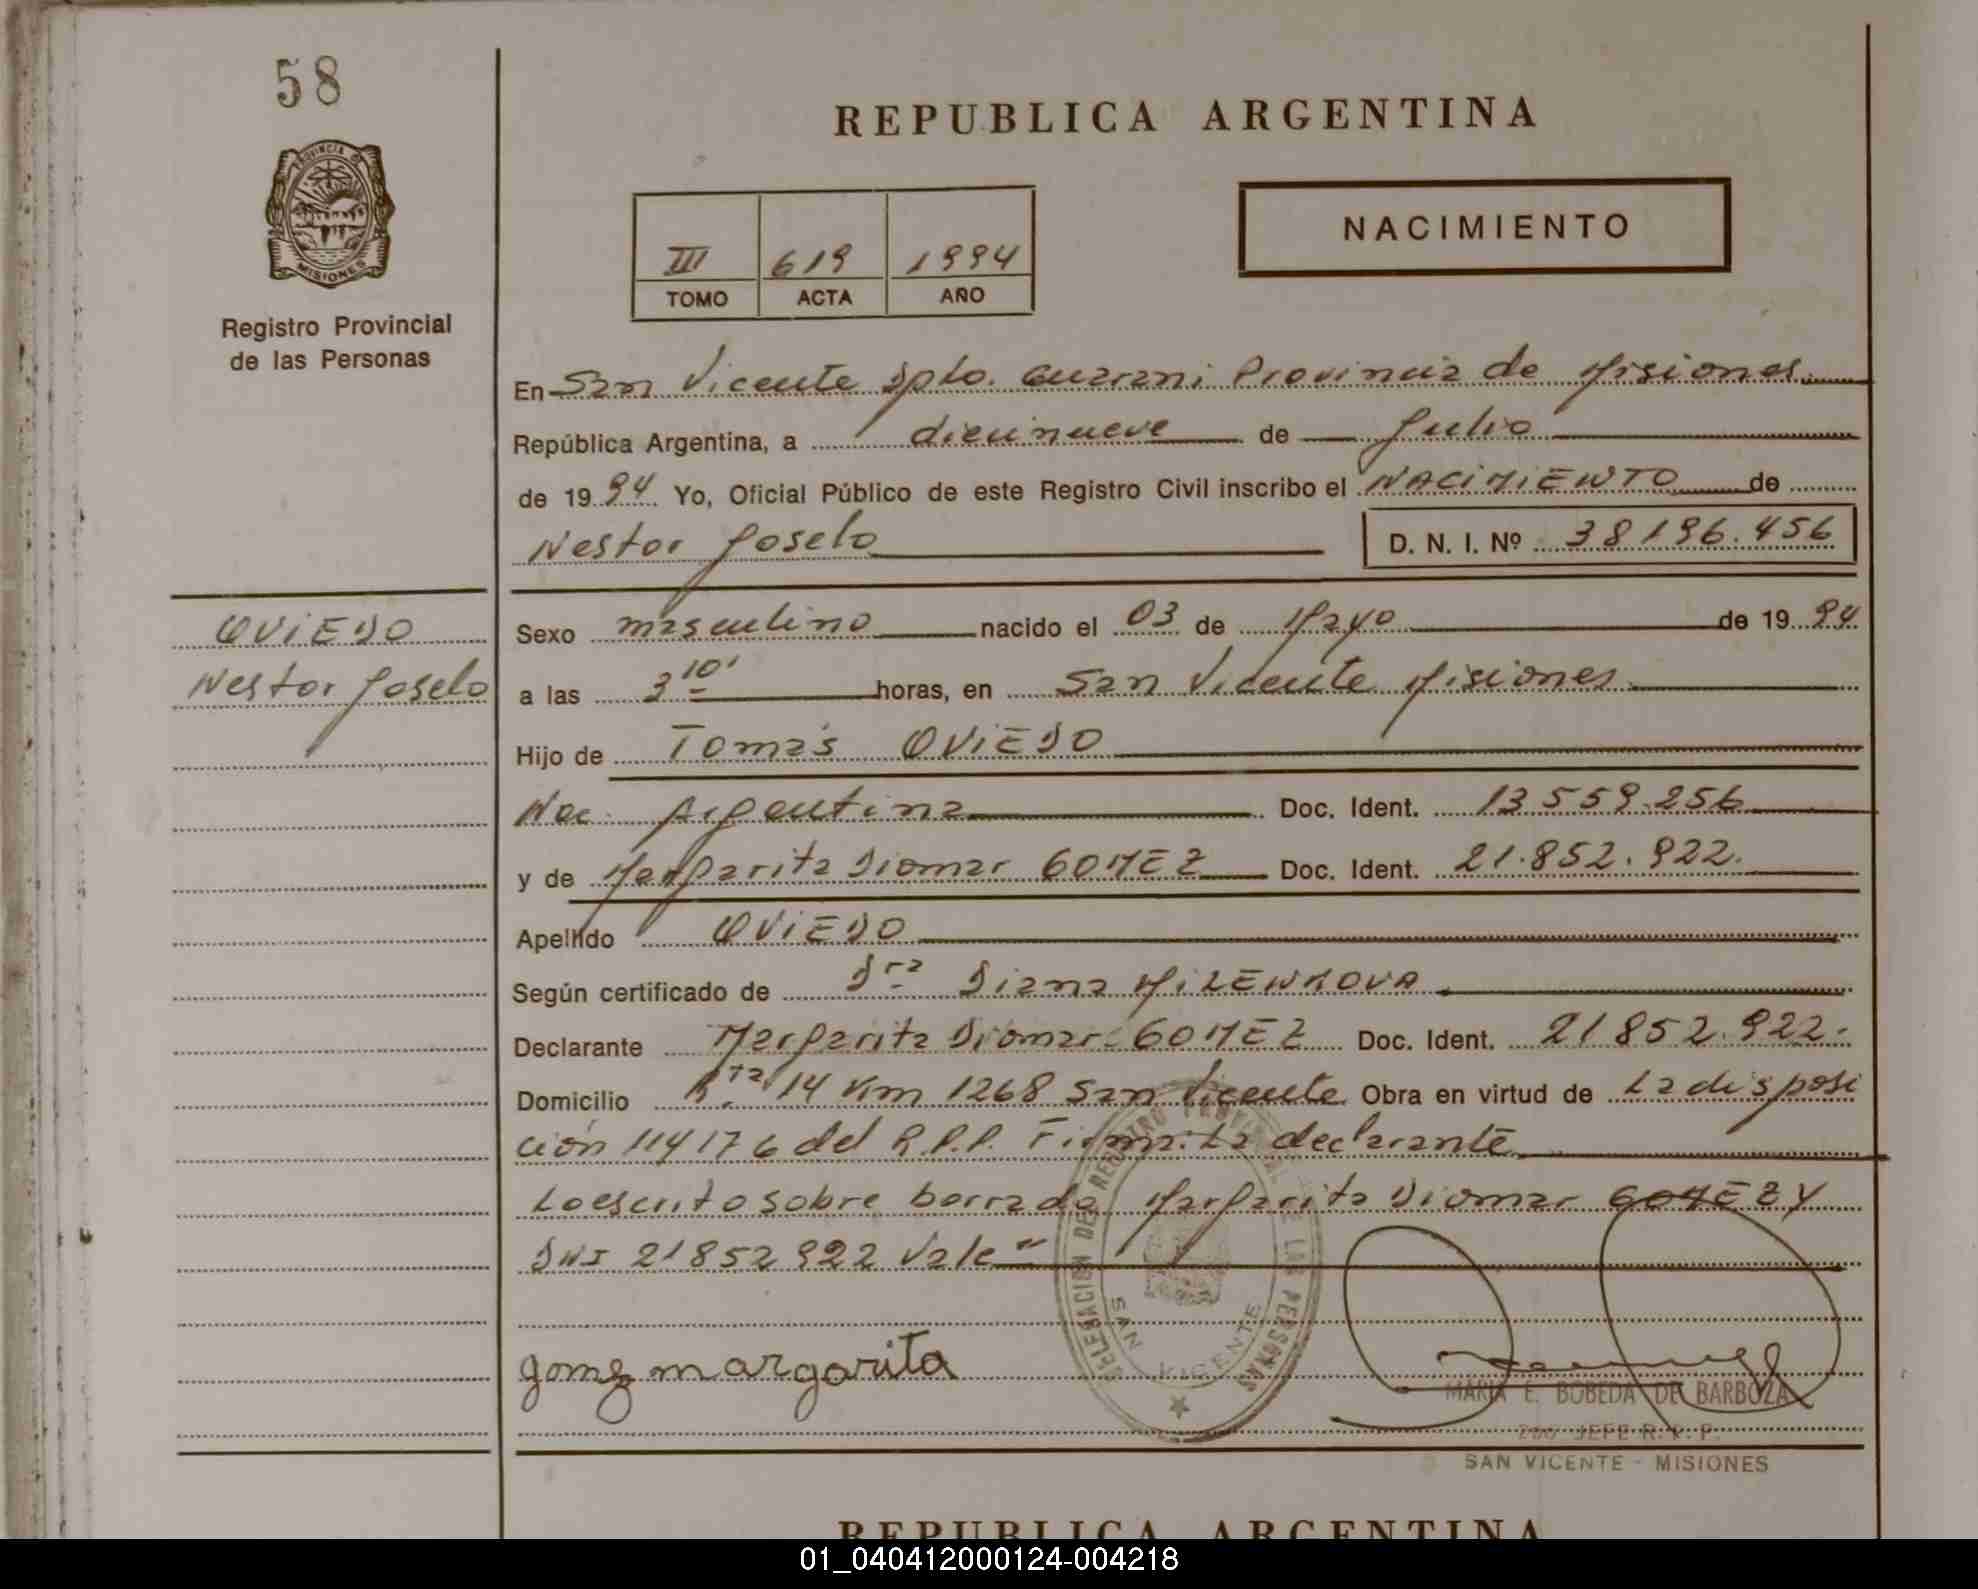 58
REPUBLICA ARGENTINA
PROVINCIA DE
MISIONES
Registro Provincial
de las Personas
III 619 1994
TOMO ACTA AÑO
NACIMIENTO
En San Vicente Dpto. Guarani Provincia de Misiones
República Argentina, a diecinueve de Julio
de 1994 Yo, Oficial Público de este Registro Civil inscribo el NACIMIENTO de
Nestor Joselo D. N. I. Nº 38196.456
OVIEDO
Nestor Joselo
Sexo masculino nacido el 03 de Mayo de 1994
a las 3 10' horas, en San Vicente Misiones
Hijo de Tomás OVIEDO
Nac. Argentina Doc. Ident. 13559.256
y de Margarita Diomar GOMEZ Doc. Ident. 21.852.922.
Apellido OVIEDO
Según certificado de Dra Diana MILENKOVA
Declarante Margarita Diomar GOMEZ Doc. Ident. 21852.922.
Domicilio Rta 14 Km 1268 San Vicente Obra en virtud de La disposi
ción 114176 del R.P.P. Firma: La declarante
Lo escrito sobre borrado Margarita Diomar GOMEZ y
DNI 21852922 Vale"
gomez margarita
DELEGACION DEL REGISTRO PROVINCIAL DE LAS PERSONAS
SAN VICENTE
MARIA E. BOBEDA DE BARBOZA
JEFE R. P. P.
SAN VICENTE - MISIONES
REPUBLICA ARGENTINA
01_040412000124-004218